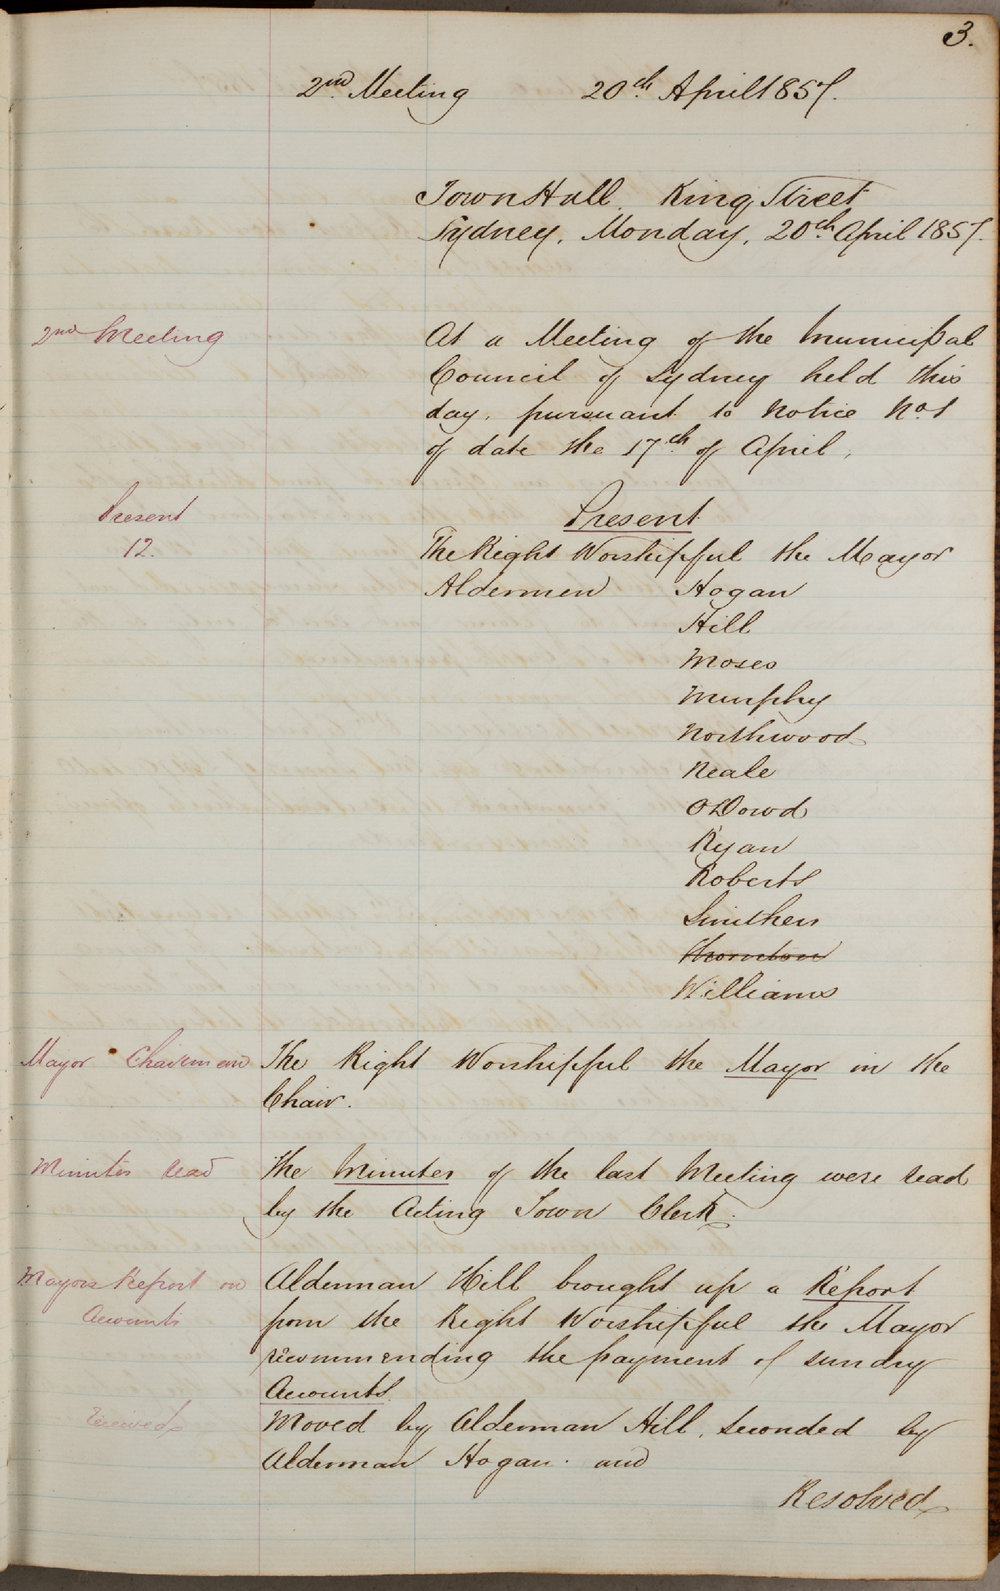 3.
2nd Meeting 20th April 1857.
Town Hall. King Street
Sydney, Monday, 20th April 1857.
2nd Meeting
At a Meeting of the Municipal
Council of Sydney held this
day, pursuant to Notice No 1
of date the 17th of April,
Present
12.
Present
The Right Worshipful the Mayor
Aldermen Hogan
Hill
Moses
Murphy
Northwood
Neale
O'Dowd
Ryan
Roberts
Smithers
Thornton
Williams
Mayor Chairman
The Right Worshipful the Mayor in the
Chair.
Minutes read
The Minutes of the last Meeting were read
by the Acting Town Clerk.
Mayors Report on
Accounts
Alderman Hill brought up a Report
from the Right Worshipful the Mayor
recommending the payment of sundry
Accounts.
received
Moved by Alderman Hill, seconded by
Alderman Hogan. and
Resolved